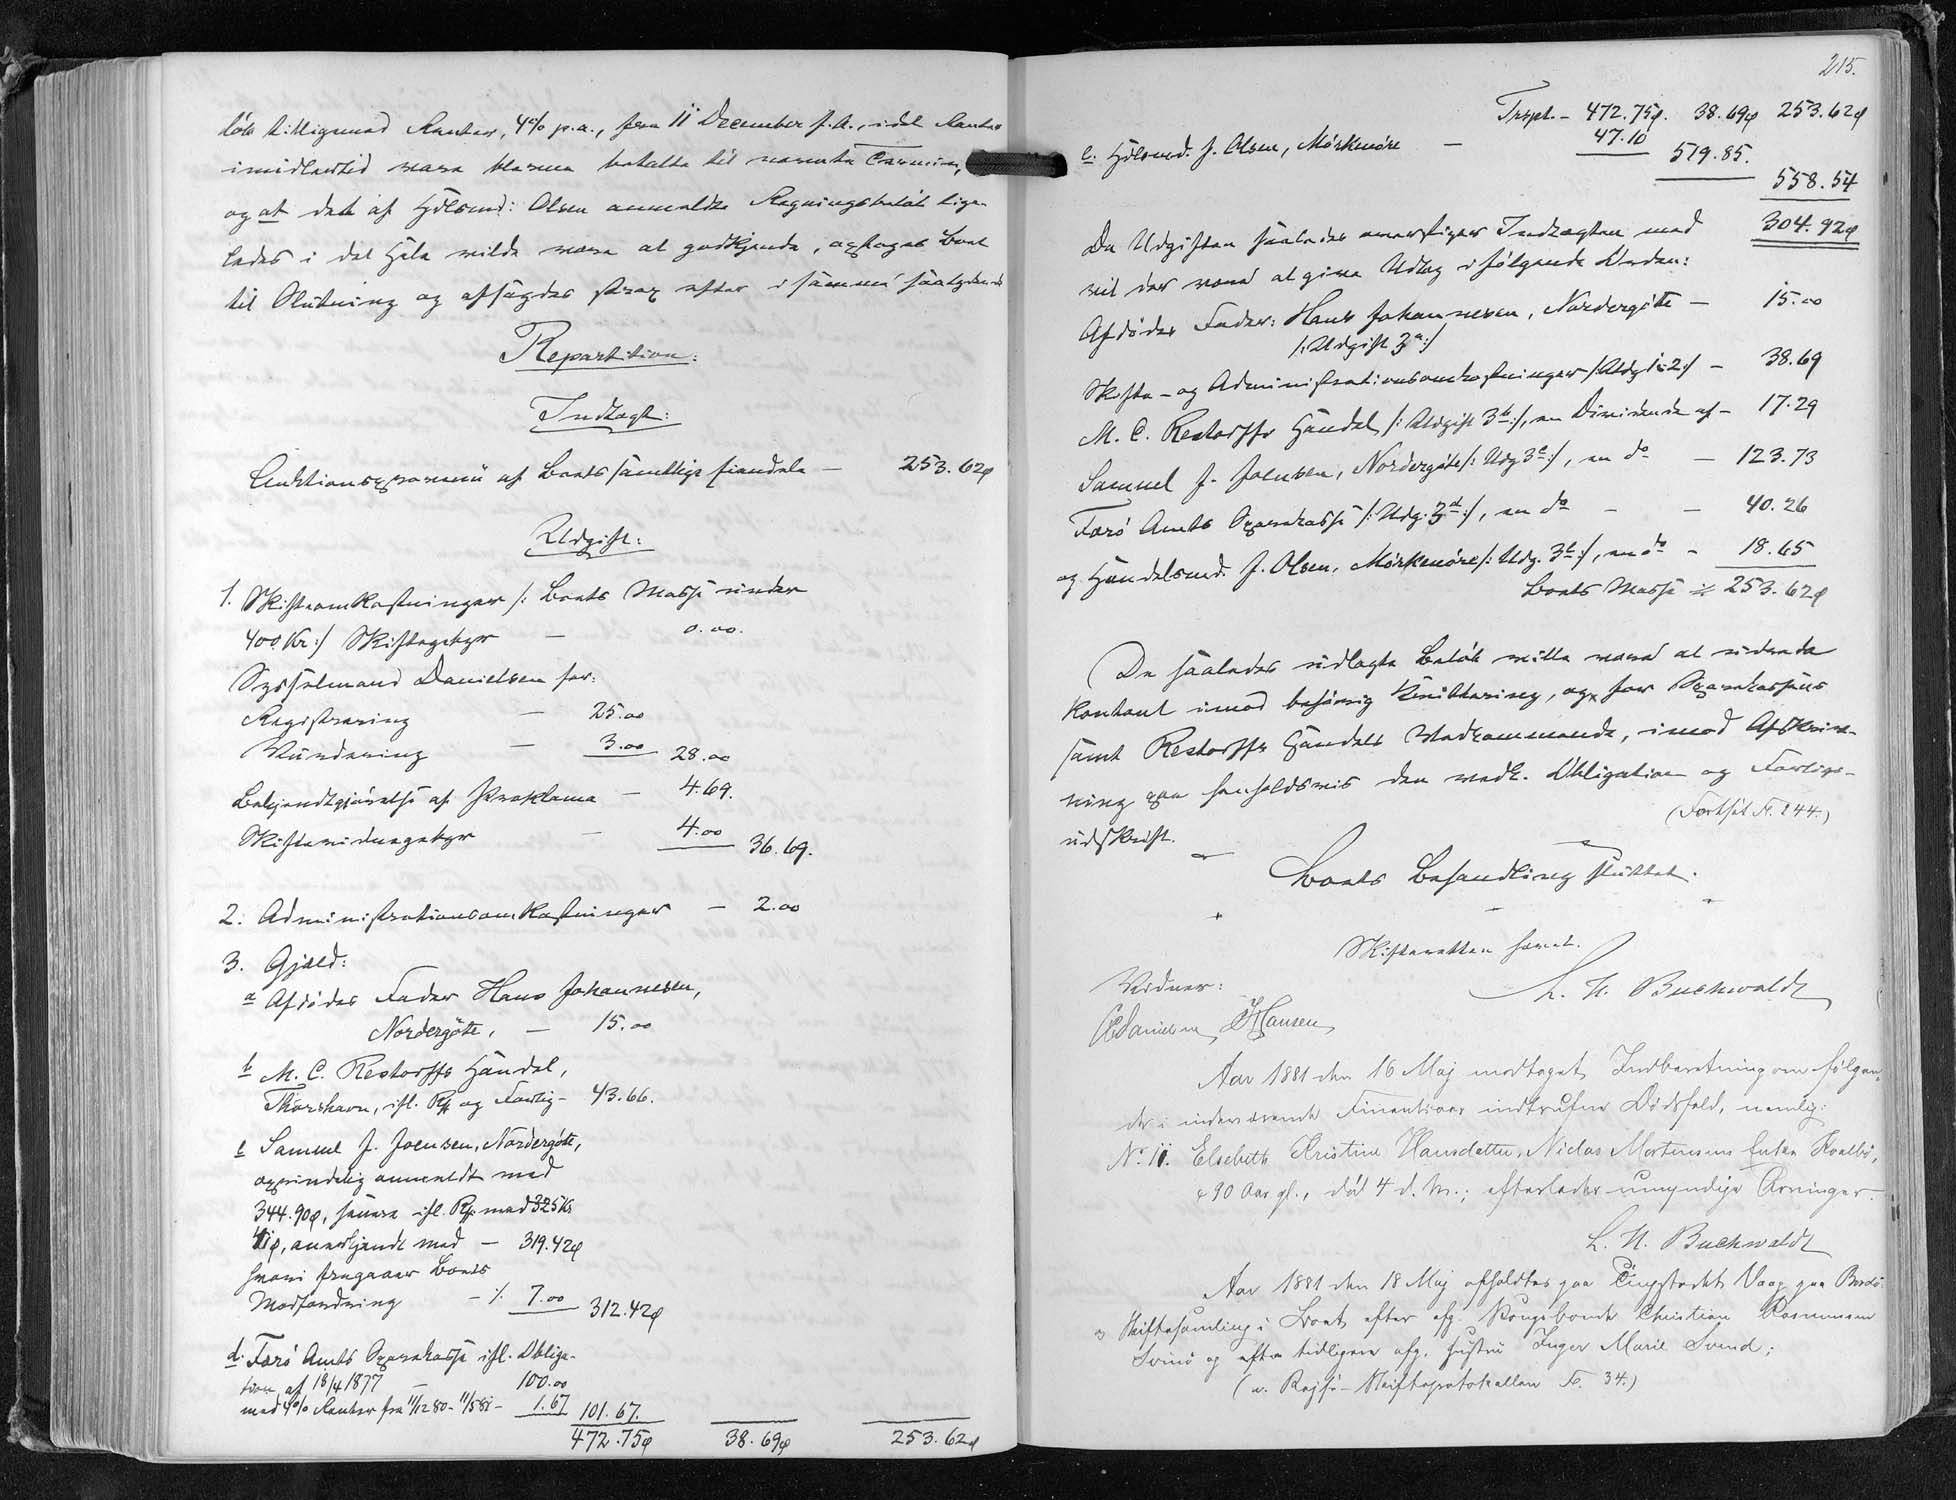 løb tilligemed Renter, 4% p.a., fra 11 December f.A., idet Renter
imidlertid være betalte til nævnte Termin,
og at det af Hdlsmd: Olsen anmeldte Regningsbeløb lige-
ledes i det Hele vilde være at godkjende, optoges Boet
til Slutning og afsagdes strax efter i samme saalydende
Repartition:
Indtægt:
Auktionsprovenü af Boets samtlige Eiendele — 253.62ø
Udgift:
1. Skifteomkostninger /: Boets Masse under
400 Kr :/ Skiftegebyr — 0.00.
Sysselmand Danielsen for:
Registrering — 25.00
Vurdering — 3.00 28.00
Bekjendtgjørelse af Proklama — 4.69.
Skifteridnegebyr — 4.00 36.69.
2. Administrationsomkostninger — 2.00
3. Gjæld:
a Afdødes Fader Hans Johannesen,
Nordergøte, — 15.00
b M. C. Restorffs Handel,
Thorshavn, ifl. Rg og Forlig — 43.66.
c Samuel J. Joensen, Nordergøte,
oprindelig anmeldt med
344.90ø, senere ifl. Rg. med 325 Kr
ø, anerkjendt med — 319.42ø
hvori fragaaer Boets
Modfordring — ./. 7.00 312.42ø
d. Færø Amts Sparekasse ifl. Obliga-
tion af 18/4 1877 — 100.00
med 4% Renter fra 11/12 80 - 11/5 81 - 1.67 101.67.
472.75ø 38.69ø 253.62ø
215.
Trspt. — 472.75ø. 38.69ø 253.62ø
e. Hdlsmd. J. Olsen, Mørkenøre — 47.10
519.85.
558.54
304.92ø
Da Udgiften saaledes overstiger Indtægten med
vil der være at give Udlæg i følgende Orden:
Afdødes Fader: Hans Johannesen, Nordergøte — 15.00
/: Udgift 3a :/
Skifte- og Administrationsomkostninger /: Udg 1 & 2 :/ — 38.69
M. C. Restorffs Handel /: Udgift 3b :/, en Dividende af — 17.29
Samuel J. Joensen, Nordergøte /: Udg 3c :/, en do — 123.73
Færö Amts Sparekasse /: Udg. 3d :/, en do — — 40.26
og Handelsmd. J. Olsen, Mørkenøre /: Udg. 3e :/, en do — 18.65
Boets Masse ÷ 253.62ø
De saaledes udlagte Beløb ville være at udrede
kontant imod behørig Kvittering, og, for Sparekassens
samt Restorffs Handels Vedkommende, imod Afskriv-
ning paa henholdsvis den vedk. Obligation og Forligs-
udskrift. (Fortsat Fo. 244.)
Boets Behandling sluttet.
Skifteretten hævet.
Vidner: L. N. Buchwaldt
Danielsen Hansen
Aar 1881 den 16 Maj modtoges Indberetning om følgen-
de i indeværende Finantsaar indtrufne Dødsfald, nemlig:
No. 11. Elsebeth Kristine Hansdatter, Niclas Mortensens Enke Kvalbø,
90 Aar gl., død 4 d. M.; efterlader umyndige Arvinger.
L. N. Buchwaldt
Aar 1881 den 18 Maj afholdtes paa Tingstedet Vaag paa Bordø
Skiftesamling i Boet efter afg. Kongsbonde Christian Rasmussen
Svinø og efter tidligere afg. Hustru Inger Marie Svend;
(v. Rejse-Skifteprotokollen Fo. 34.)